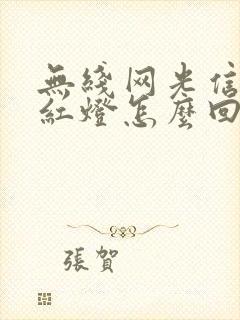 無綫网光信
紅燈怎麼回
張賀